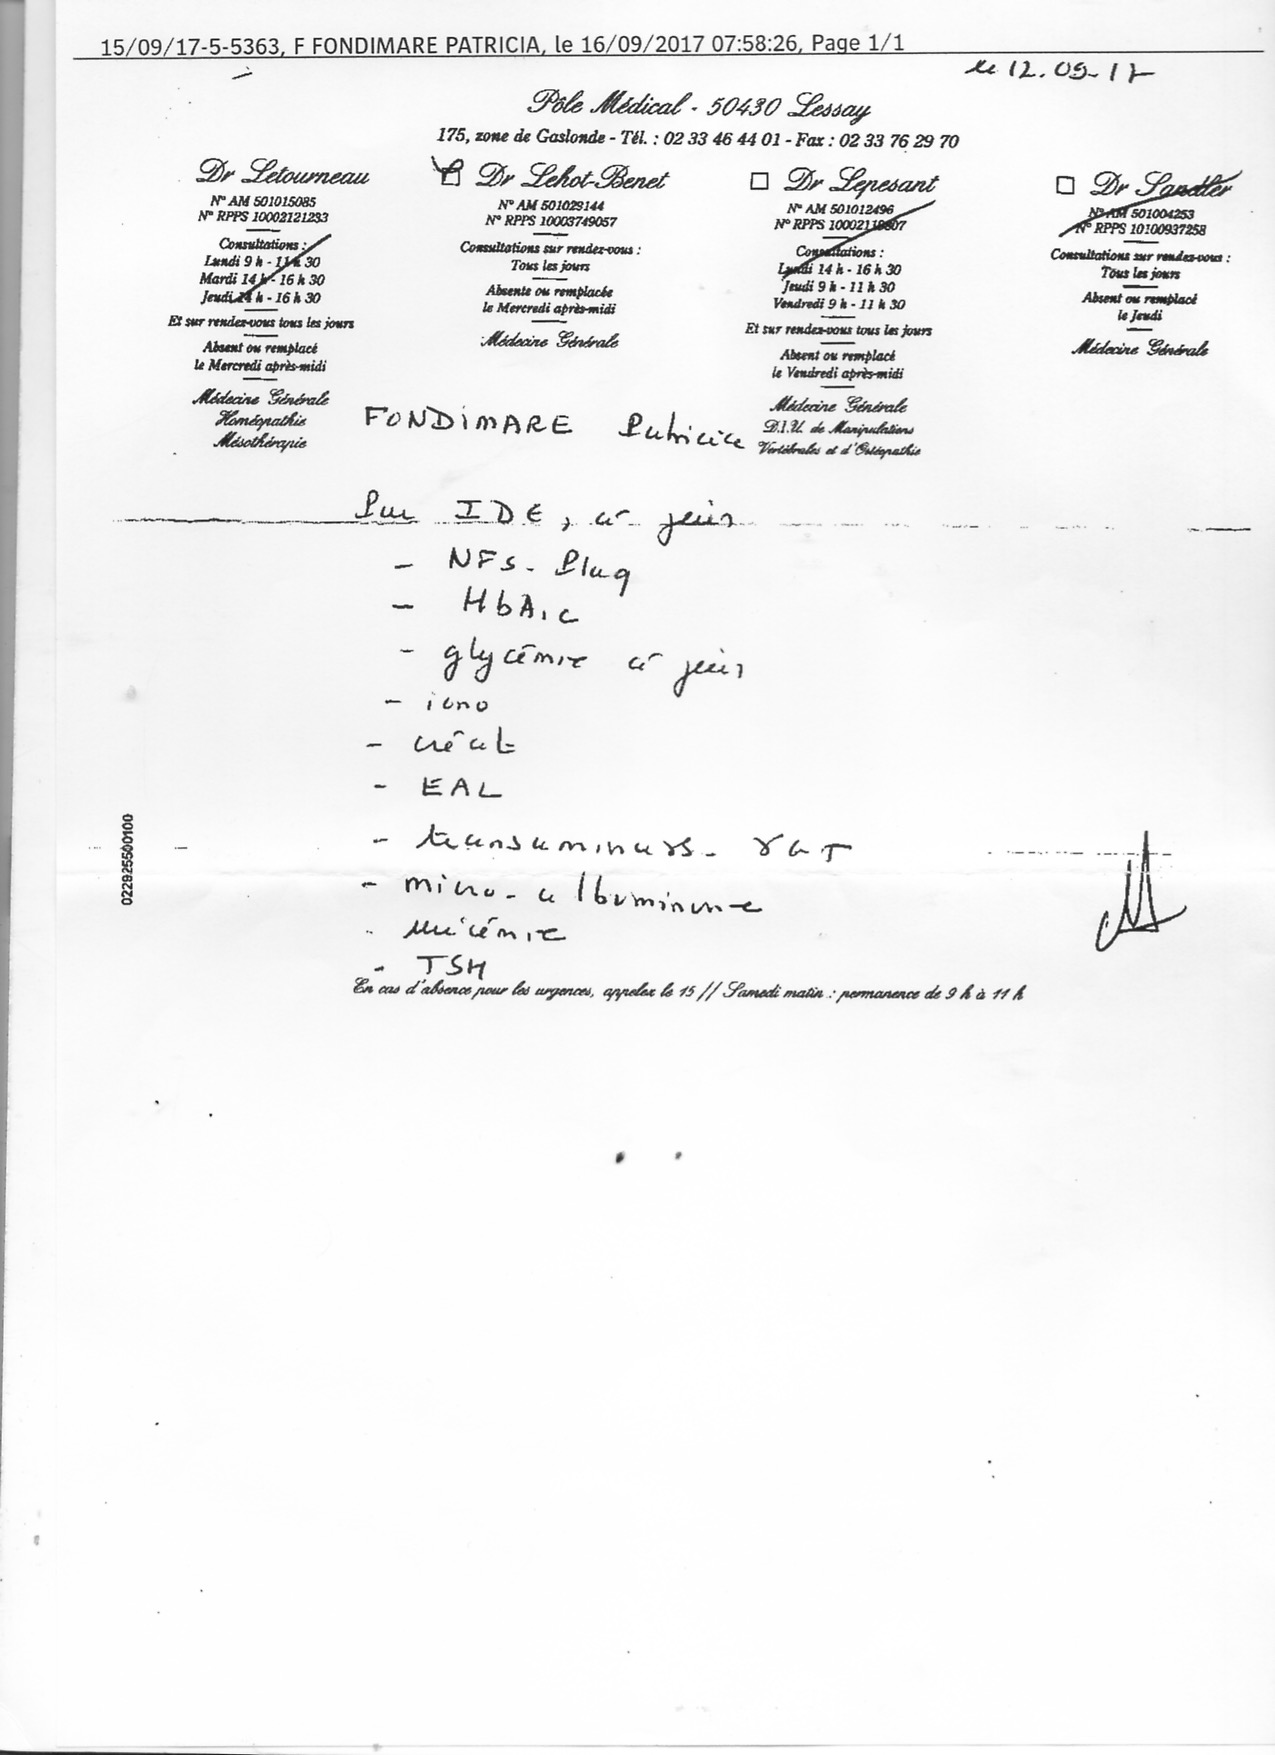 15/09/17-5-5363, F FONDIMARE PATRICIA, le 16/09/2017 07:58:26, Page 1/1
le 12.09.17
Pôle Médical - 50430 Lessay
175, zone de Gaslonde - Tél. : 02 33 46 44 01 - Fax : 02 33 76 29 70
Dr Letourneau
N° AM 501015085
N° RPPS 10002121233
Consultations :
Lundi 9 h - 11 h 30
Mardi 14 h - 16 h 30
Jeudi 14 h - 16 h 30
Et sur rendez-vous tous les jours
Absent ou remplacé
le Mercredi après-midi
Médecine Générale
Homéopathie
Mésothérapie
Dr Lehot-Benet
N° AM 501029144
N° RPPS 10003749057
Consultations sur rendez-vous :
Tous les jours
Absente ou remplacée
le Mercredi après-midi
Médecine Générale
Dr Lepesant
N° AM 501012496
N° RPPS
Consultations :
Lundi 14 h - 16 h 30
Jeudi 9 h - 11 h 30
Vendredi 9 h - 11 h 30
Et sur rendez-vous tous les jours
Absent ou remplacé
le Vendredi après-midi
Médecine Générale
D.I.U. de Manipulations
Vertébrales et d'Ostéopathie
Dr Sandler
N° AM 501004253
N° RPPS 10100937258
Consultations sur rendez-vous :
Tous les jours
Absent ou remplacé
le Jeudi
Médecine Générale
FONDIMARE Patricia
Par IDE, à jeun
- NFS - Plaq
- HbA1c
- glycémie à jeun
- iono
- créat
- EAL
- transaminases - γGT
- micro-albuminurie
- uricémie
- TSH
022925500100
En cas d'absence pour les urgences, appelez le 15 // Samedi matin : permanence de 9 h à 11 h